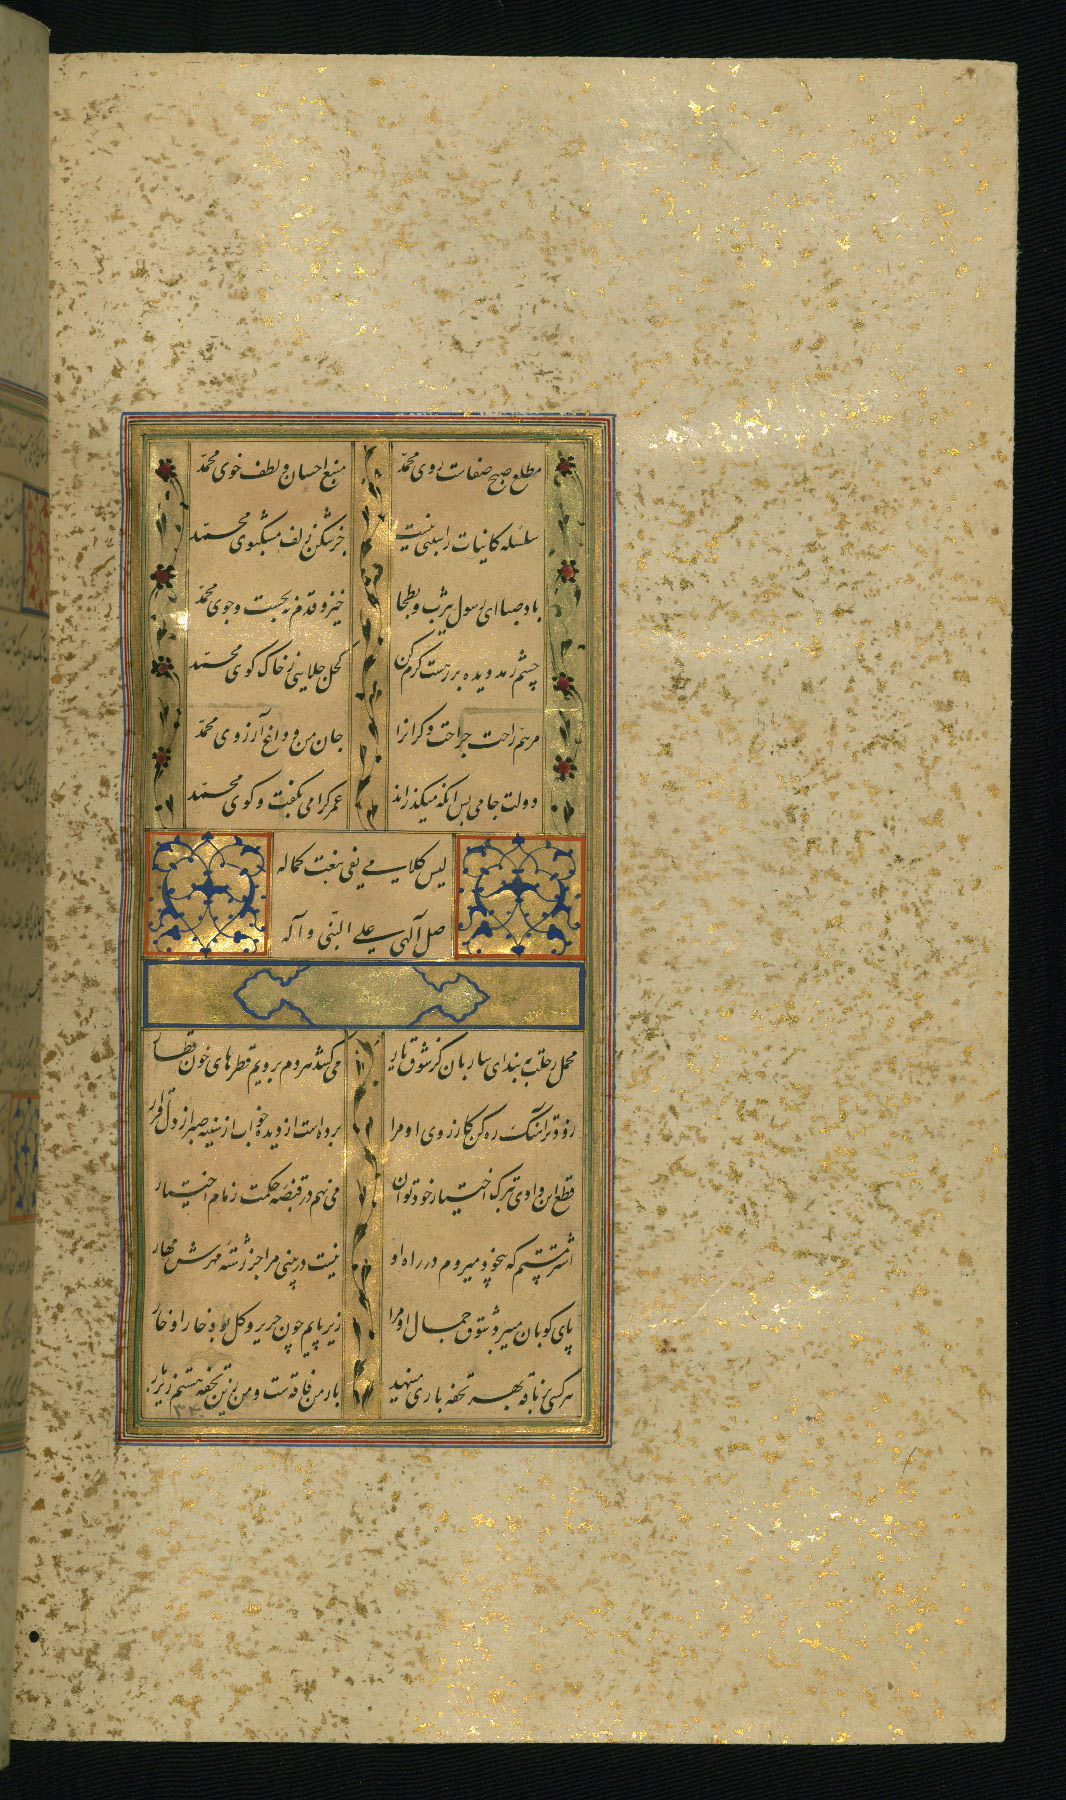 مطلع صبح صفاست روی محمد منبع احسان و لطف خوی محمد
سلسله کاینات را سببی نیست جز شکن زلف مشکبوی محمد
باد صبا ای رسول یثرب و بطحا خیز و قدم نه بجست و جوی محمد
چشم رمد دیده بر رهست کرم کن کحل جلایی ز خاک کوی محمد
مرهم راحت جراحت دکرانرا جان من و داغ آرزوی محمد
دولت جامی بس انکه میکذراند عمر کرامی بکفت و کوی محمد
لیس کلامی یفی بنعت کماله
صل آلهی علی النبی و آله
محمل رحلت ببند ای ساربان کز شوق یار می کشد هر دم برویم قطرهای خون قطار
زودتر آهنگ ره کن کارزوی او مرا برده است از دیده خواب از سینه صبر از دل قرار
قطع این وادی بترک اختیار خود توان می نهم در قبضه حکمت زمام اختیار
اشتر مستم که بیخود میروم در راه او نیست در بینی مرا جز رشته مهرش مهار
پای کوبان میبرد شوق جمال او مرا زیر پایم چون حریر و کل بود خارا و خار
هر کسی بر ناقه بهر تحفه باری مینهد بار من فاقه ست و من زین تحفه هستم زیر بار